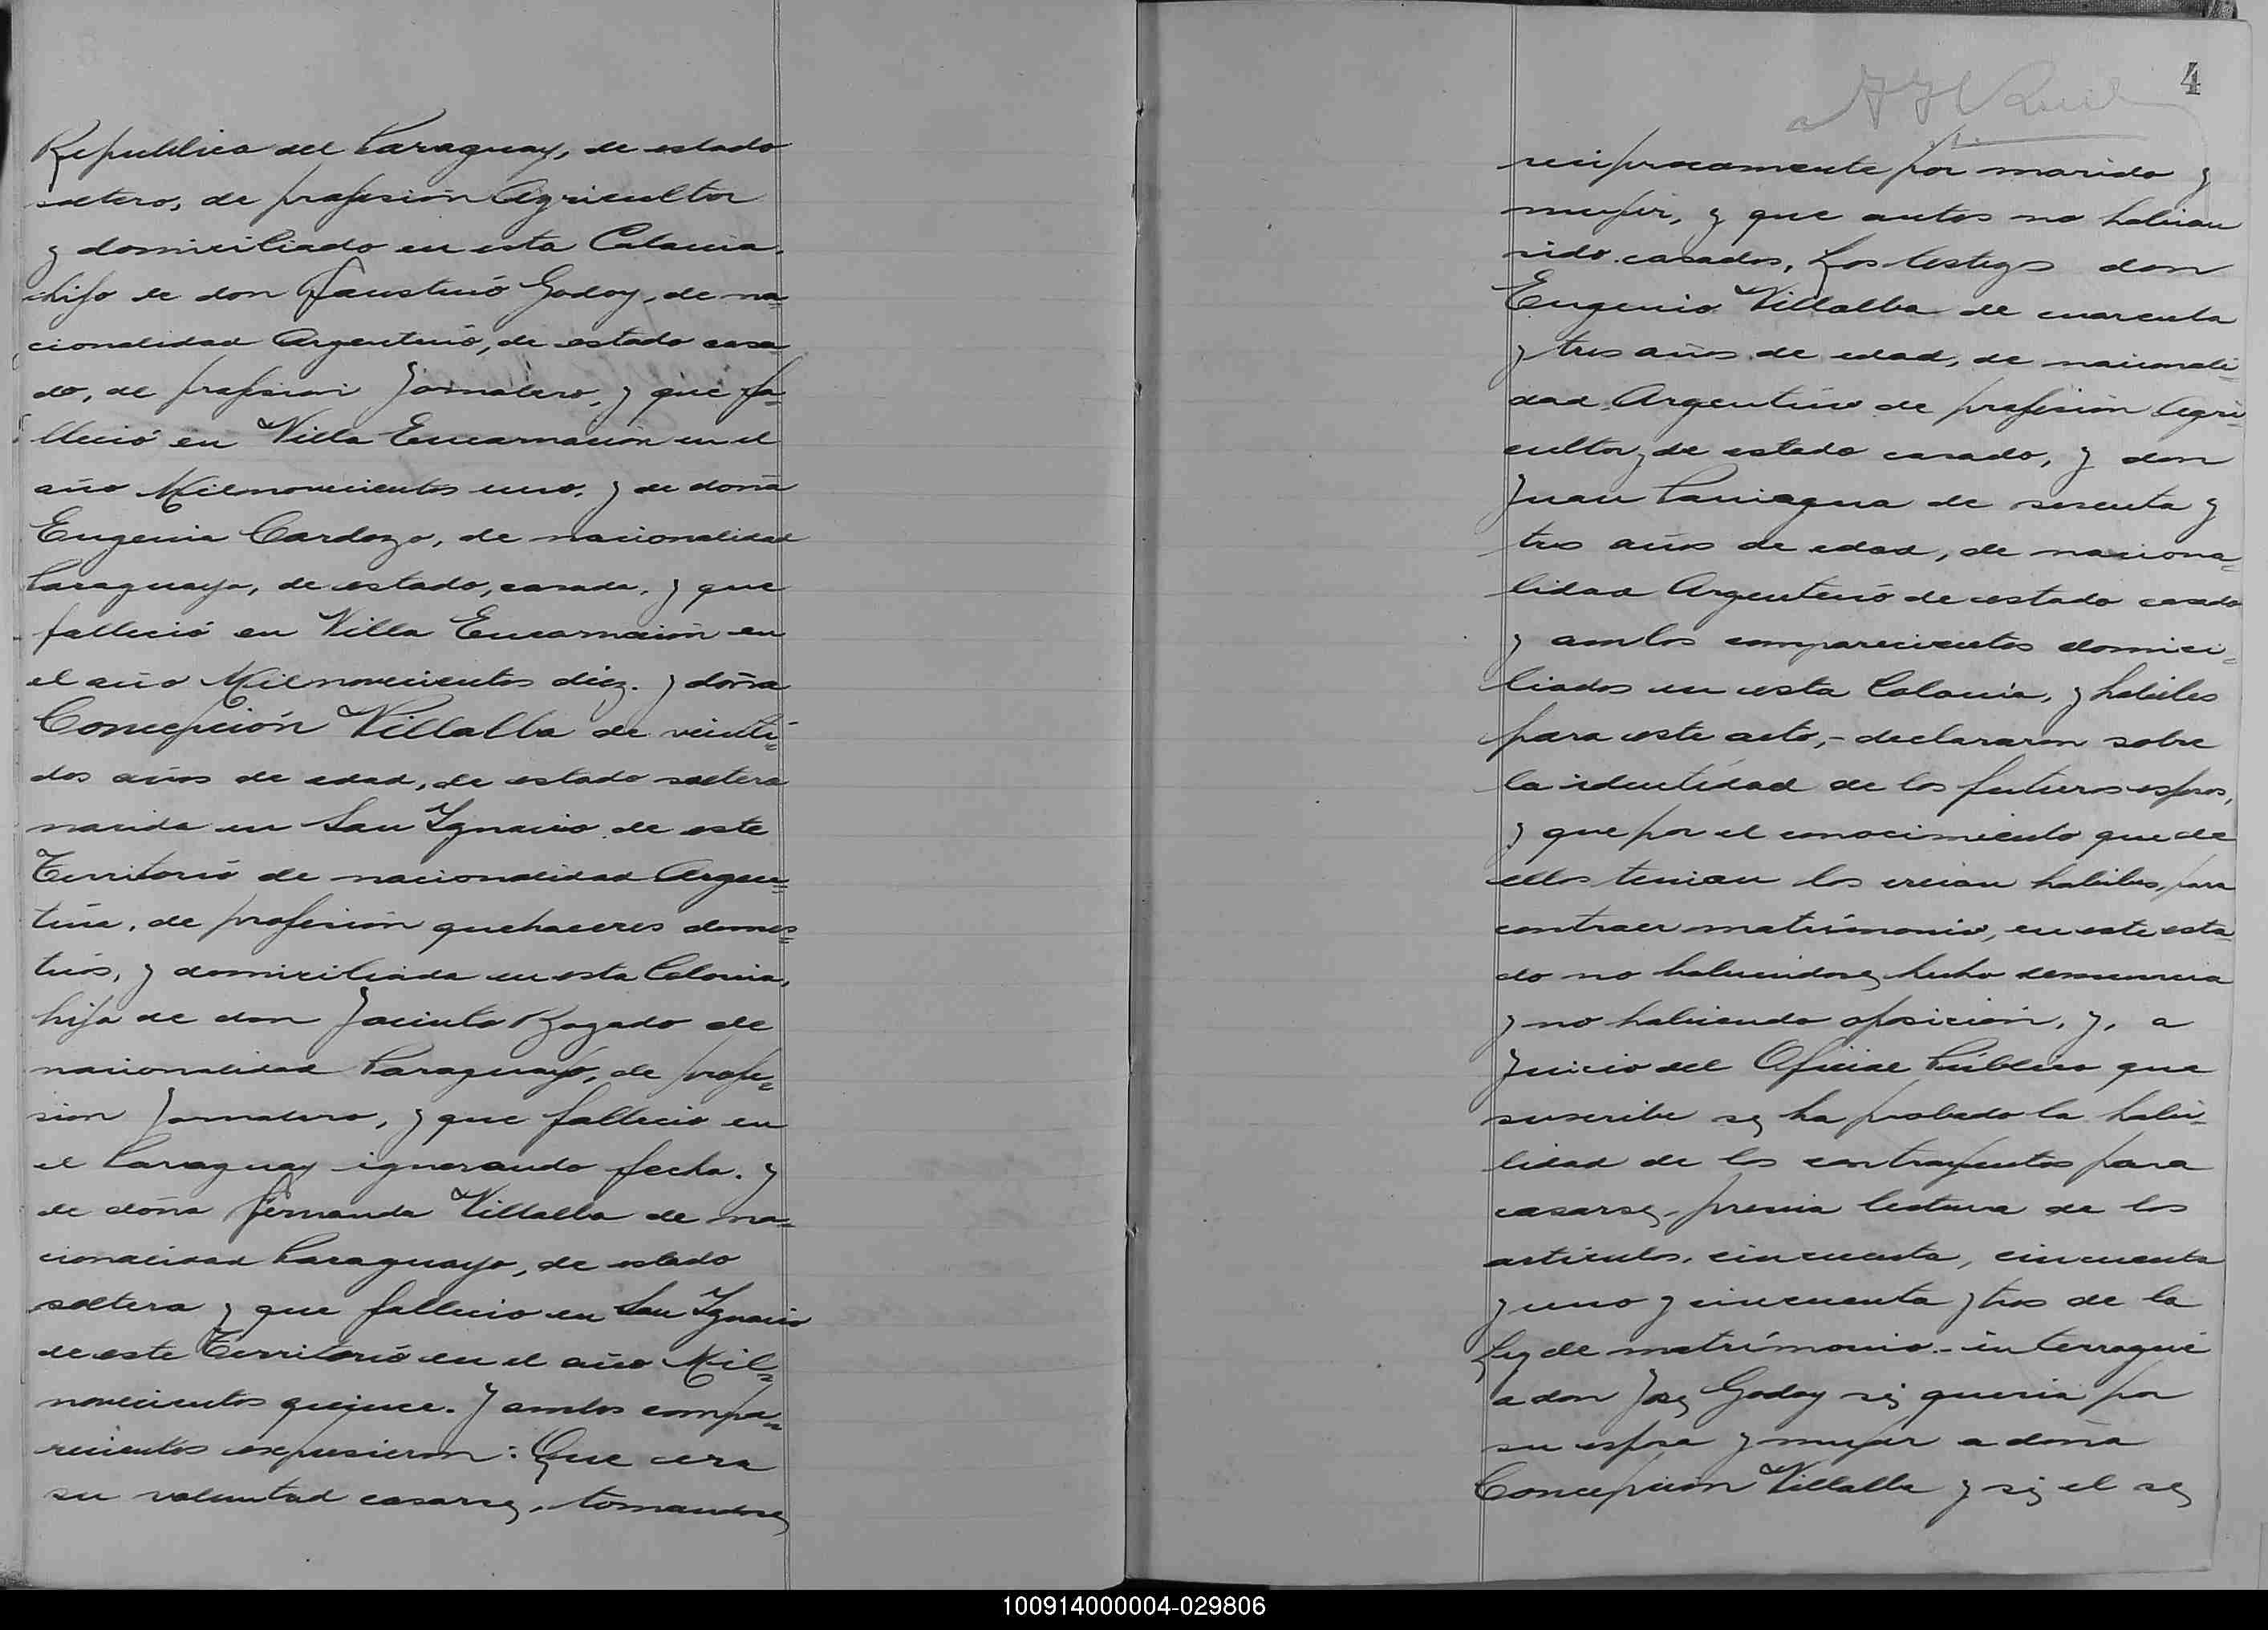 Republica del Paraguay, de estado
soltero, de profesión Agricultor
y domiciliado en esta Colonia.
hijo de don Faustino Godoy, de na=
cionalidad Argentino, de estado casa
do, de profesion Jornalero, y que fa=
lleció en Villa Encarnación en el
año Milnovecientos uno. y de doña
Eugenia Cardozo, de nacionalidad
Paraguaya, de estado, casada, y que
falleció en Villa Encarnación en
el año Milnovecientos diez. y doña
Concepción Villalba de veinti=
dos años de edad, de estado soltera
nacida en San Ignacio de este
Territorio de nacionalidad Argen=
tina, de profesión quehaceres domes=
tios, y domiciliada en esta Colonia,
hija de don Jacinto Bogado de
nacionalidad Paraguayo, de profe=
sion Jornalero, y que fallecio en
el Paraguay ignorando fecha. y
de doña Fernanda Villalba de na=
cionalidad Paraguaya, de estado
soltera y que fallecio en San Ignacio
de este Territorio en el año Mil=
novecientos quince. Y ambos compa=
recientos expusieron: Que era
su voluntad casarse, tomandose
4
reciprocamente por marido y
mujer, y que antes no habian
sido casados, Los testigos don
Eugenio Villalba de cuarenta
y tres años de edad, de nacionali=
dad Argentino de profesión Agri=
cultor y de estado casado, y don
Juan Paniagua de sesenta y
tres años de edad, de naciona=
lidad Argentino de estado casado
y ambos comparecientos domici=
liados en esta Colonia, y habiles
para este acto,- declararon sobre
la identidad de los futuros esposos,
y que por el conocimiento que de
ellos tenian los creian habiles, para
contraer matrimonio, en este esta
do no habiendose hecho denuncia
y no habiendo oposición, y, a
Juicio del Oficial Público que
suscribe se ha probado la habi=
lidad de los contrayentes para
casarse, previa lectura de los
articulos, cincuenta, cincuenta
y uno y cincuenta y tres de la
Ley de matrimonio.- interrogué
a don José Godoy si queria por
su esposa y mujer a doña
Concepcion Villalba y si el se
100914000004-029806